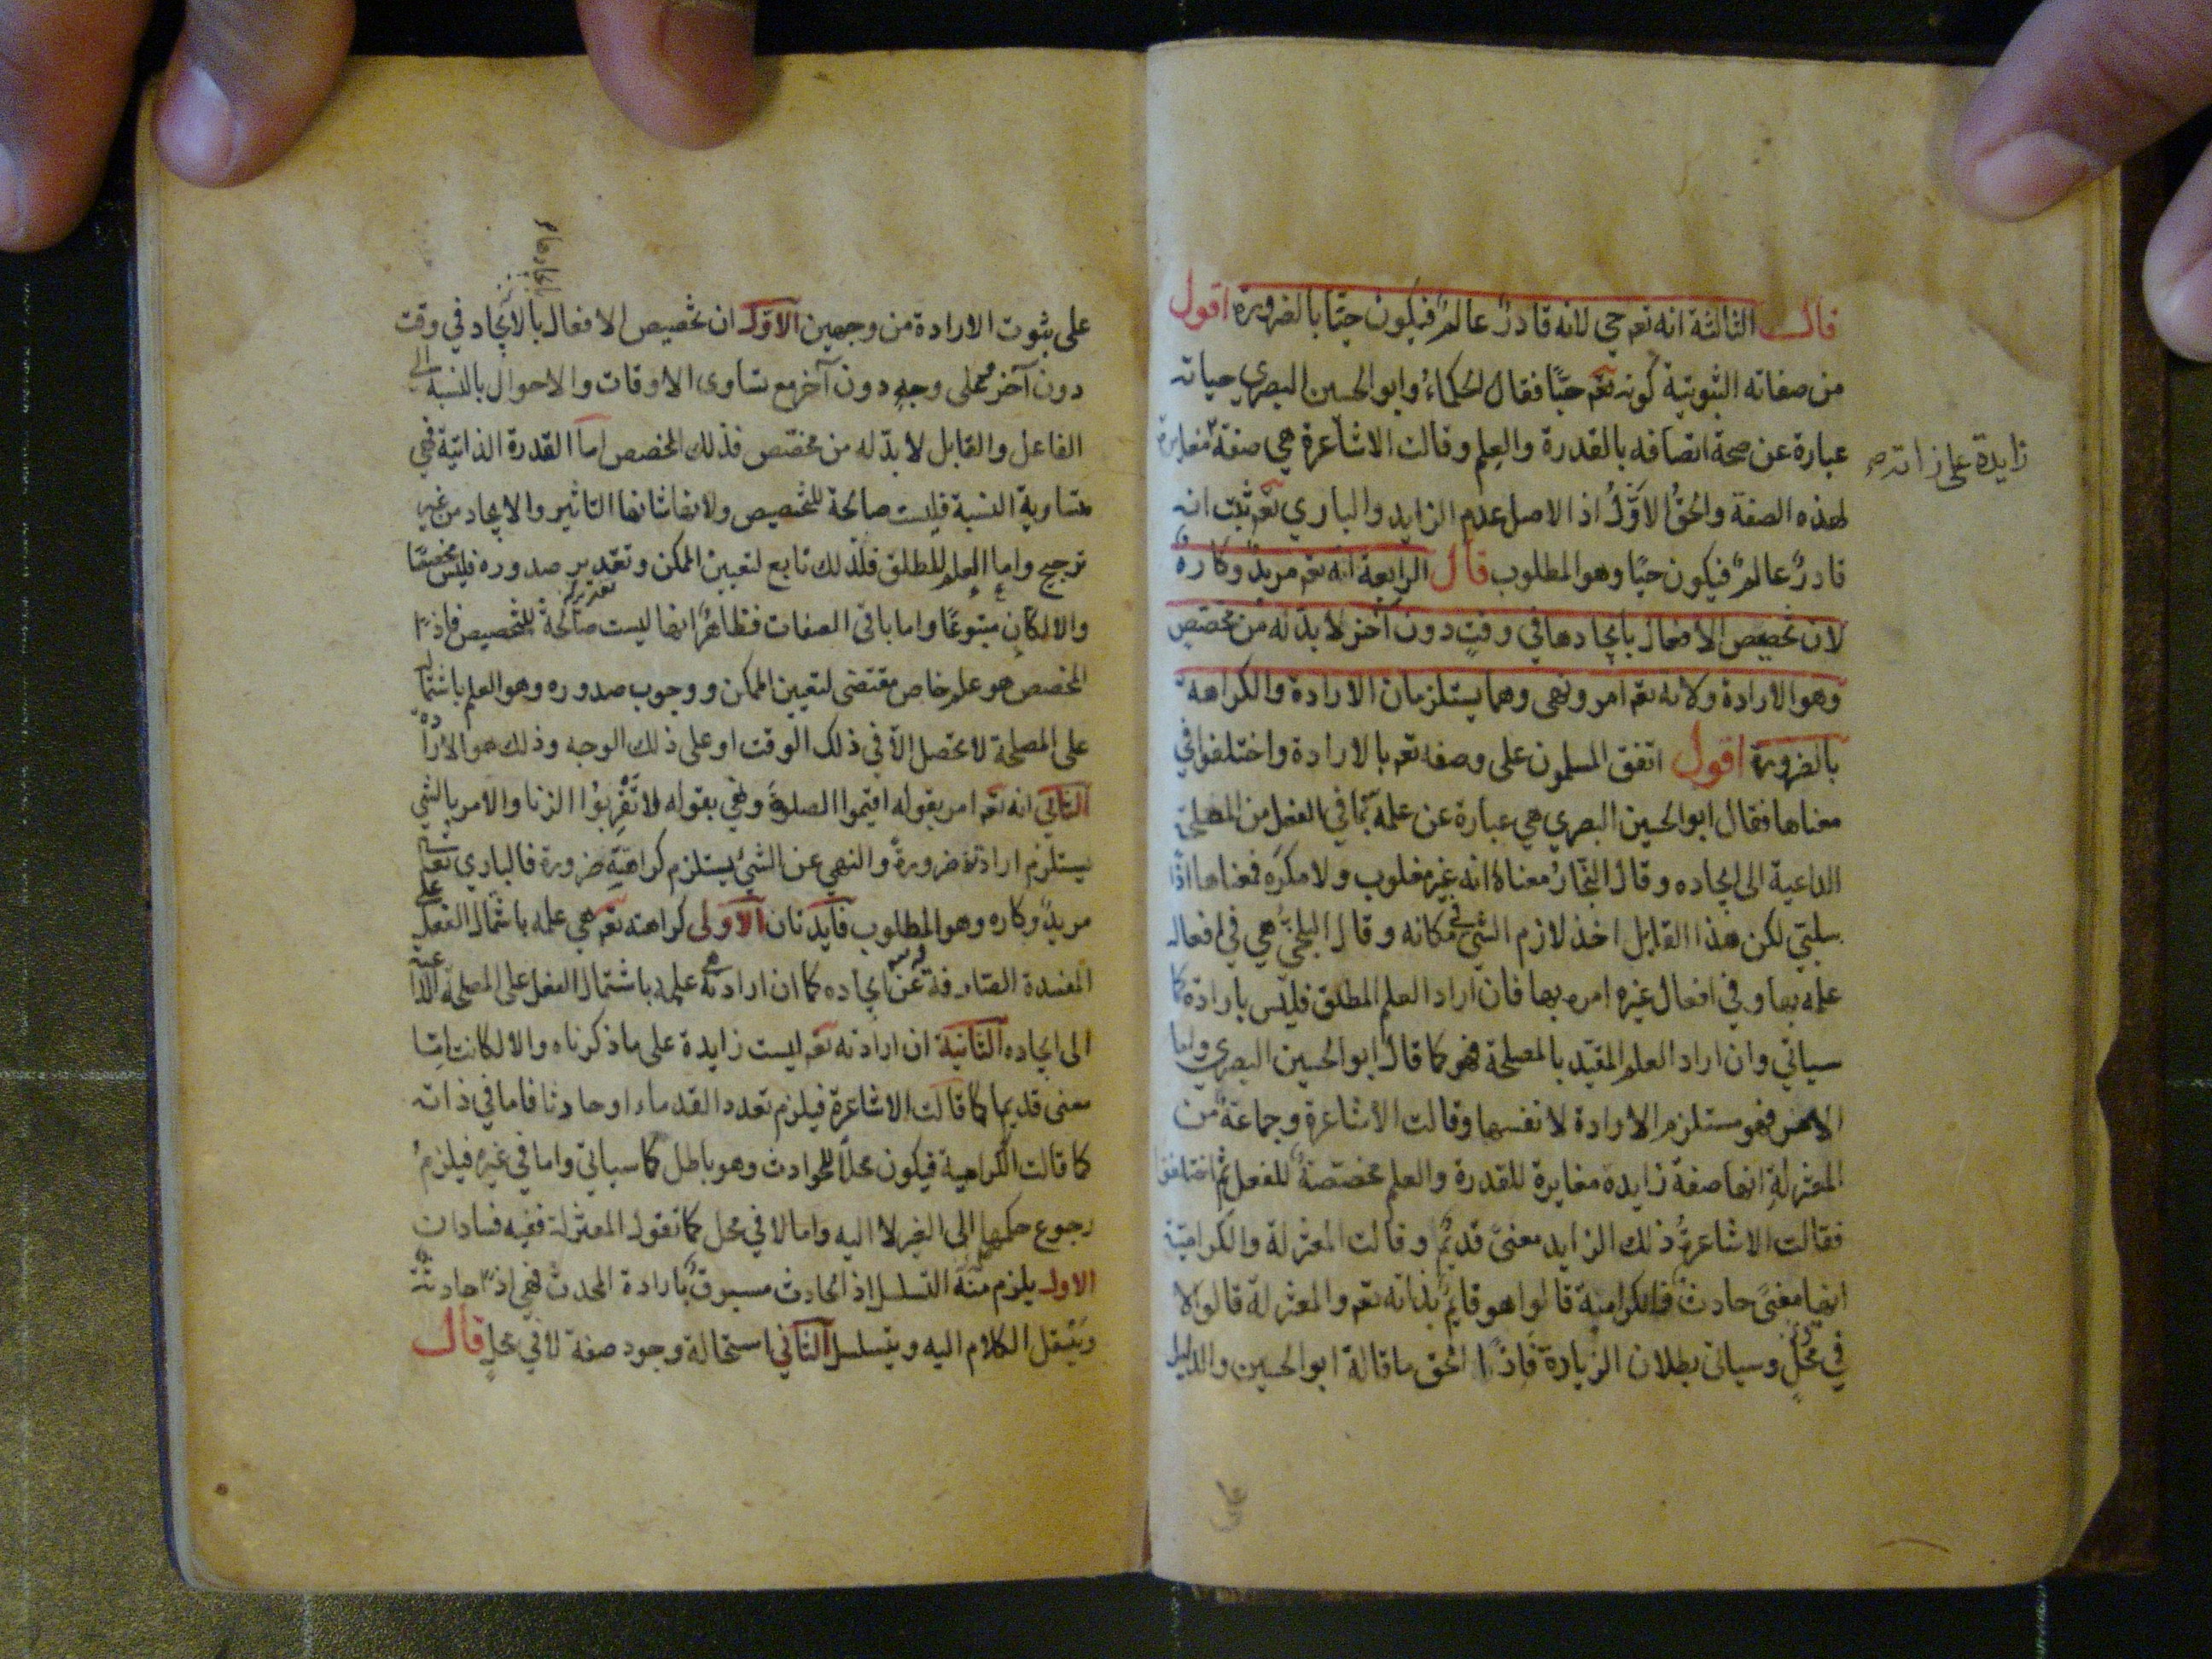 قال الثالثة انه تعم حي لانه قادر عالم فيكون حيّا بالضرورة اقول
من صفاته الثبوتية كونه تعم حيّا فقال الحكماء وابو الحسين البصري حياته
عبارة عن صحة اتصافه بالقدرة والعلم وقالت الاشاعرة هي صفة مغايرة
زايدة على ذاته
لهذه الصفة والحقُّ الاوّلُ اذ الاصل عدم الزايد والباري تعم ثبت انه
قادرٌ عالمٌ فيكون حيّا وهو المطلوب قال الرابعة انه تعم مريدٌ وكاره
لان تخصيص الافعال بايجادها في وقتٍ دون آخر لا بدّ له من مخصّص
وهو الارادة ولانه تعم امر ونهى وهما يستلزمان الارادة والكراهة
بالضرورة اقول اتفق المسلمون على وصفه تعم بالارادة واختلفوا في
معناها فقال ابو الحسين البصري هي عبارة عن علمه بما في الفعل من المصلحة
الداعية الى ايجاده وقال النجّارُ معناهُ انه غير مغلوب ولا مكرَهٍ فمعناها اذًا
سلبيّ لكن هذا القايل اخذ لازم الشي في مكانه وقال البلخيُّ هي في افعاله
علمه بها وفي افعال غيره امره بها فان اراد العلم المطلق فليس بارادة كما
سياتي وان اراد العلم المقيّد بالمصلحة فهو كما قال ابو الحسين البصري واما
الامر فهو مستلزم الارادة لا نفسها وقالت الاشاعرة وجماعة من
المعتزلةِ انها صفة زايدة مغايرة للقدرة والعلم مخصّصة للفعل ثم اختلفوا
فقالت الاشاعرةُ ذلك الزايد معنىً قديمٌ وقالت المعتزلة والكراميّة
انها معنىً حادث فالكرامية قالوا هو قايمٌ بذاته تعم والمعتزلة قالوا لا
في محلٍّ وسياتي بطلان الزيادة فاذًا الحق ما قاله ابو الحسين والدليل
على ثبوت الارادة من وجهين الاوّل ان تخصيص الافعال بالايجاد في وقت
دون آخر وعلى وجهٍ دون آخر مع تساوى الاوقات والاحوال بالنسبة الى
الفاعل والقابل لا بدّ له من مخصّص فذلك المخصص اما القدرة الذاتيّة فهي
متساوية النسبة فليست صالحة للتخصيص ولانها شانها التاثير والايجاد من غير
ترجيح واما العلم المطلق فذلك تابع لتعيين الممكن وتقدير صدوره فليس مخصّصًا
والا لكان متبوعًا واما باقي الصفات فظاهرٌ انها ليست صالحة للتخصيص فاذًا
المخصص هو علم خاص مقتضى لتعيين الممكن ووجوب صدوره وهو العلم باشتماله
على المصلحة لا تحصل الّا في ذلك الوقت او على ذلك الوجه وذلك هو الارادة
الثاني انه تعم امر بقوله اقيموا الصلوة ونهي بقوله لا تَقْرِبُوا الزنا والامر بالشي
يستلزم ارادتهُ ضرورةً والنهي عن الشئ يستلزم كراهتِه ضرورة فالباري تعم
مريدٌ وكاره وهو المطلوب فايدتان الاولى كراهته تعم هي علمه باشتمال الفعل على
المفسدة الصارفة عن ايجاده كما ان ارادته هي علمه باشتمال الفعل على المصلحة الداعية
الى ايجاده الثانية ان ارادته تعم ليست زايدة على ما ذكرناه والا لكانت امّا
معنى قديما كما قالت الاشاعرة فيلزم تعدد القدماء او حادثا فاما في ذاته
كما قالت الكرامية فيكون محلًّا للحوادث وهو باطل كما سياتي واما في غيره فيلزمُ
رجوع حكمها الى الغير لا اليه واما لا في محل كما تقول المعتزلة ففيه فسادان
الاول يلزم منه التسلسل اذ الحادث مسبوق بارادة المحدث فهي اذًا حادثة
وينتقل الكلام اليه ويتسلسل الثاني استحالة وجود صفة لا في محلٍ قال